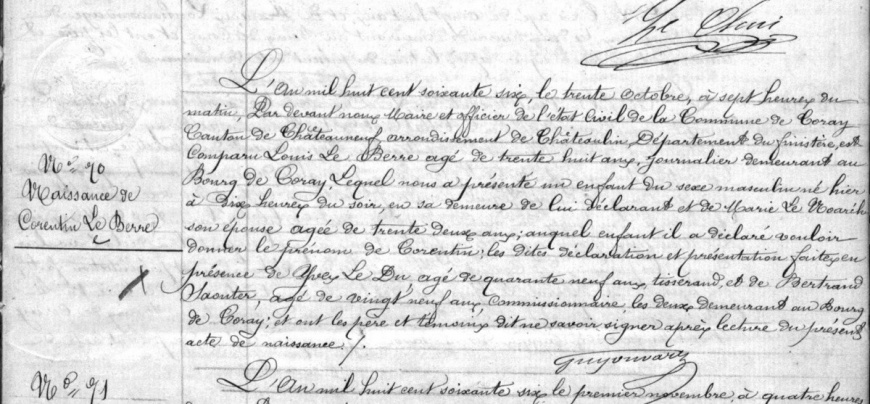 Le
L'an mil huit cent soixante six, le trente octobre, à sept heures du
matin, Par devant nous Maire et officier de l'état Civil de la Commune de Coray
Canton de Châteauneuf arrondissement de Châteaulin, Département du finistère, est
Comparu Louis Le Berre agé de trente huit ans, journalier demeurant au
Bourg de Coray, Lequel nous a présenté un enfant du sexe masculin né hier
à Dix heures du soir, en sa demeure de lui déclarant et de Marie Le Noarih
son épouse agée de trente deux ans; auquel enfant il a déclaré vouloir
donner le prénom de Corentin; les dites déclaration et présentation faites en
présence de Yves Le Du, agé de quarante neuf ans, tisserand, et de Bertrand
Saouter, agé de vingt neuf ans Commissionnaire les deux demeurant au Bourg
de Coray; et ont les père et témoins dit ne savoir signer après lecture du présent
acte de naissance ./.
Guyonvarch
N° 70
Naissance de
Corentin Le Berre
N° 71
L'an mil huit cent soixante six le premier novembre, à quatre heures